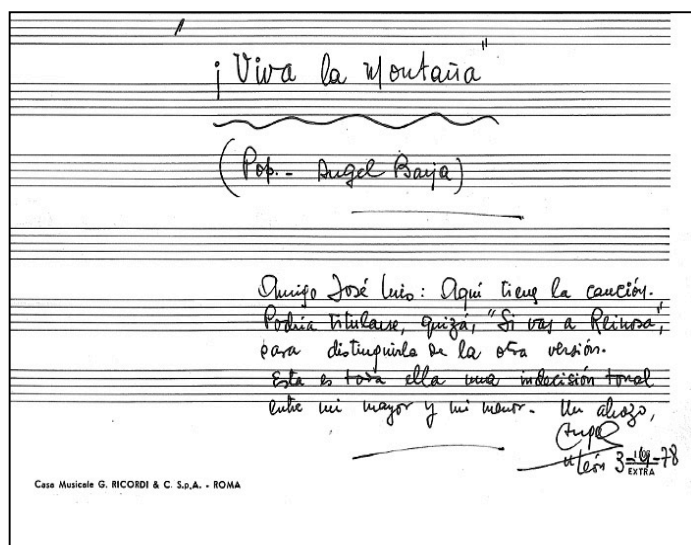 ¡Viva la Montaña"
(Pop. - Angel Barja)
Amigo José Luis: Aquí tienes la canción.
Podría titularse, quizá, "Si vas a Reinosa",
para distinguirla de la otra versión.
Esta es toda ella una indecisión tonal
entre mi mayor y mi menor. - Un abrazo,
Angel
León 3 -78
EXTRA
Casa Musicale G. RICORDI & C. S.p.A. - ROMA